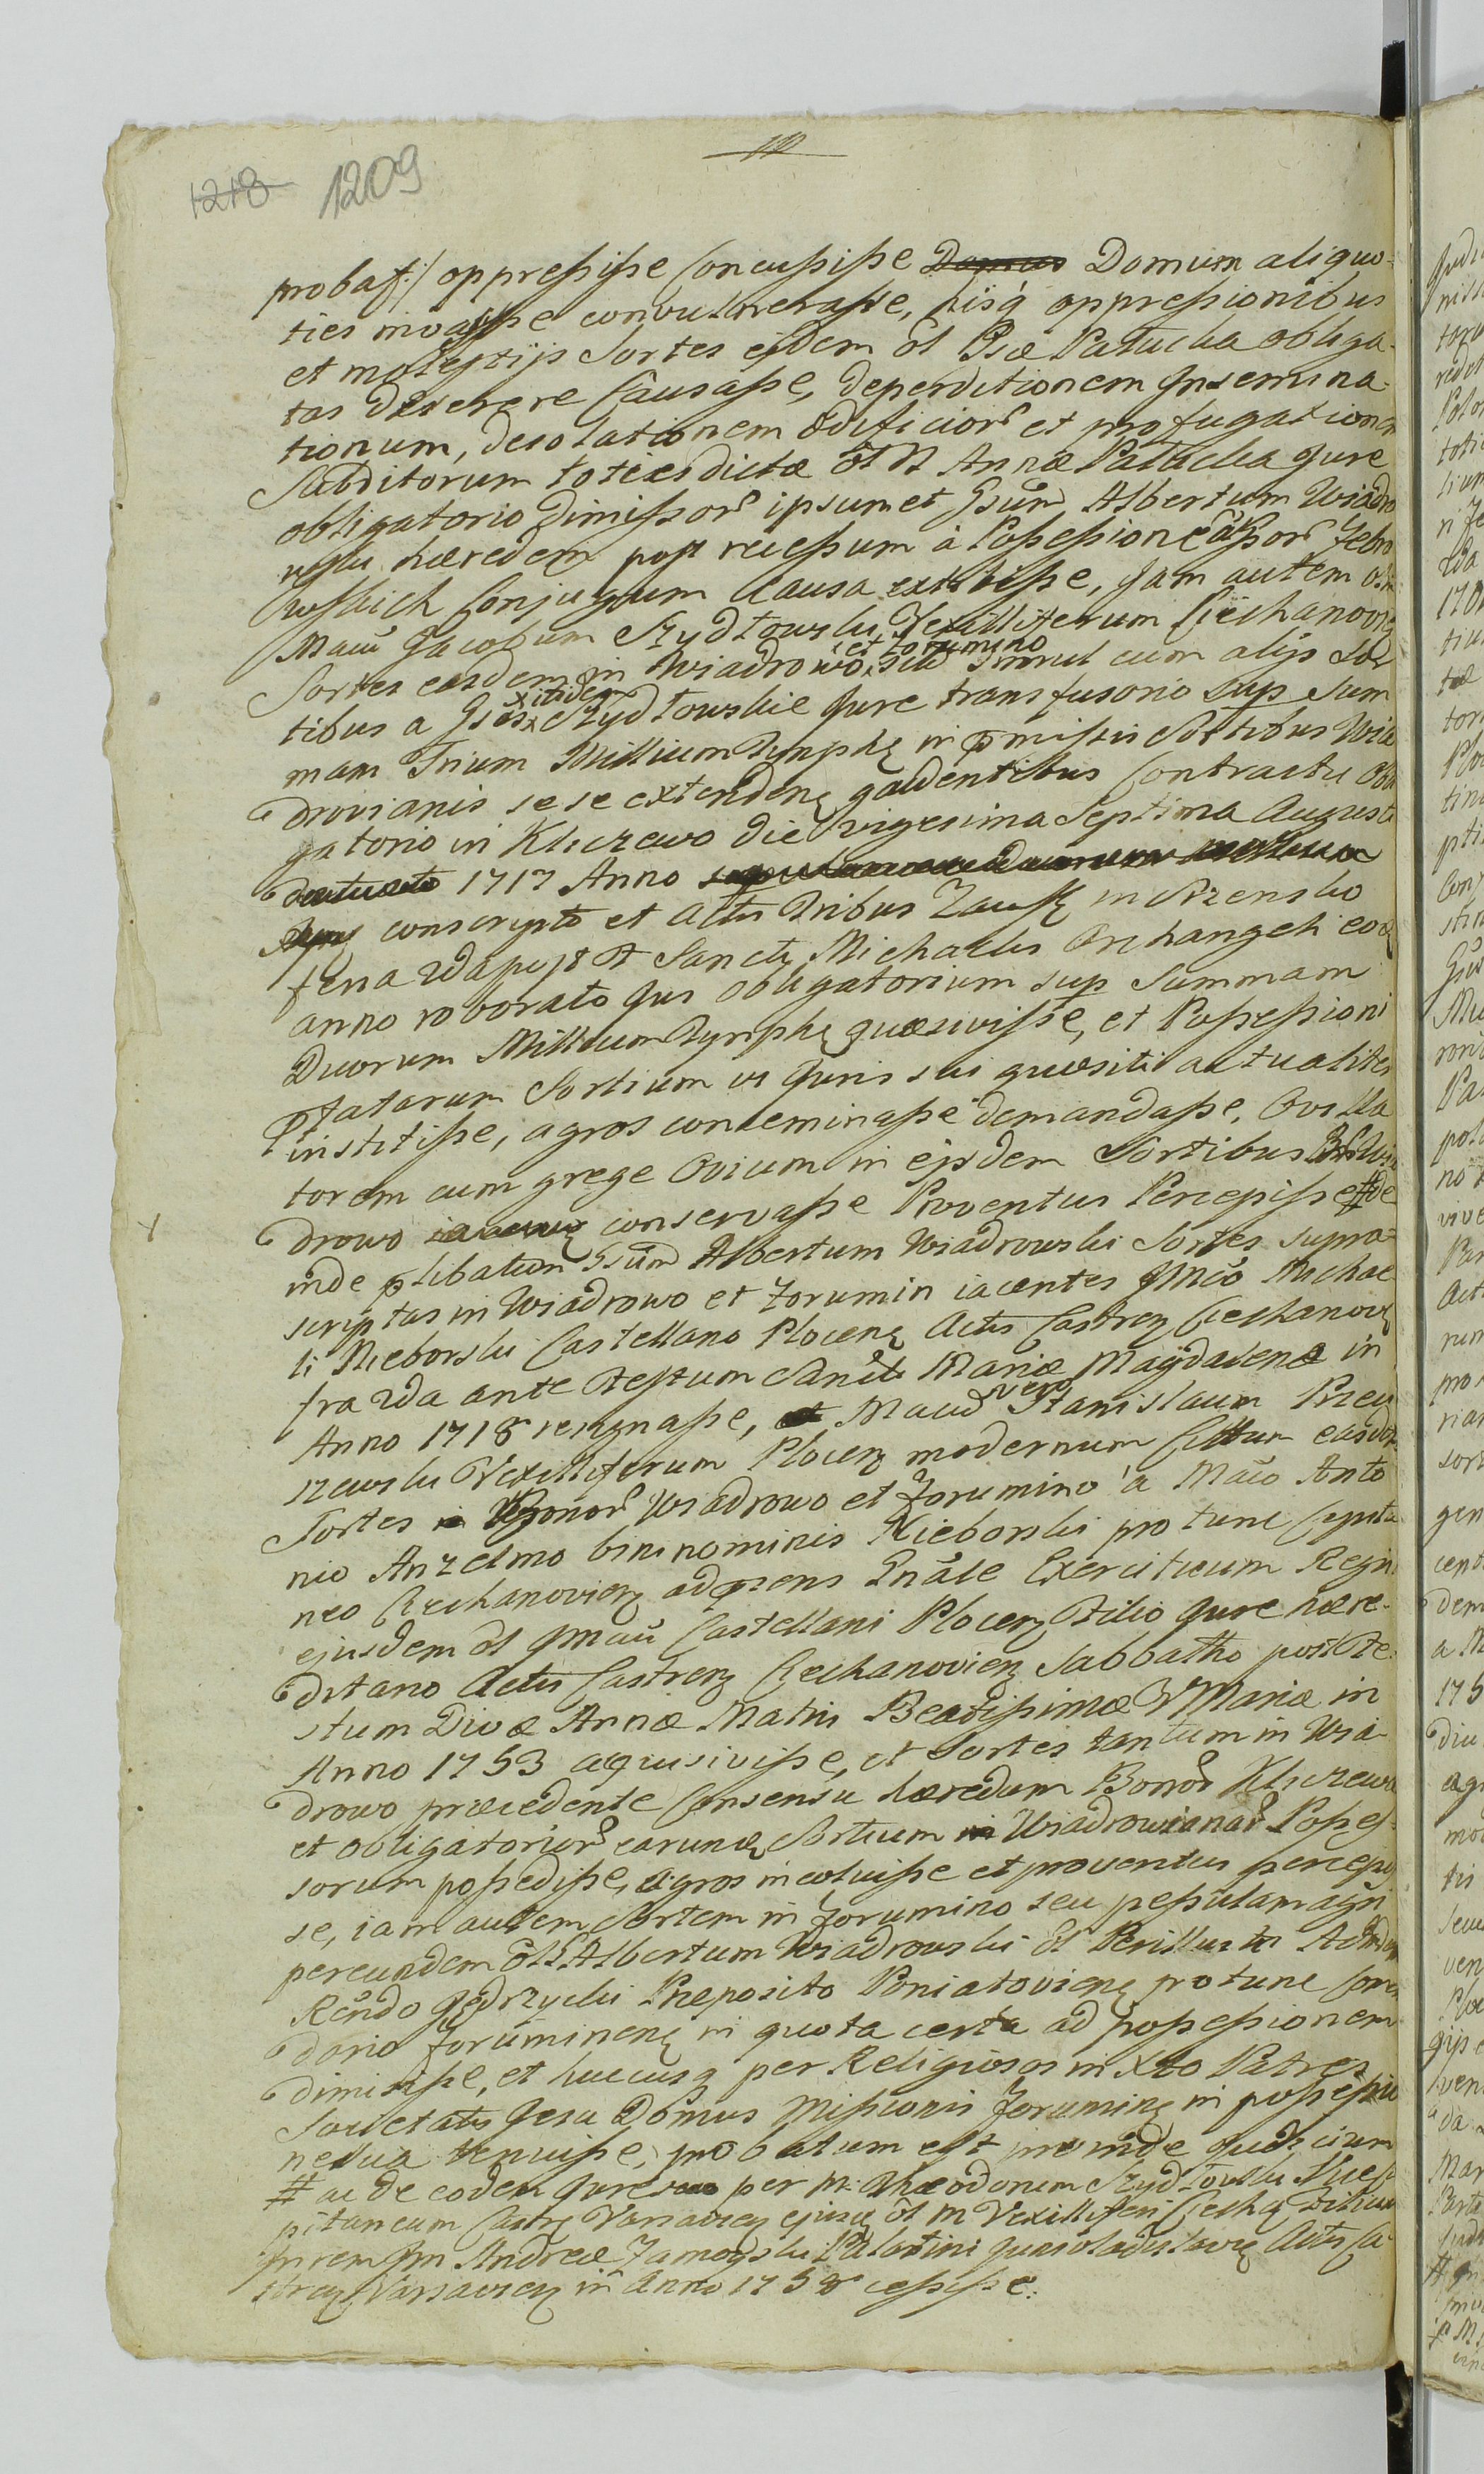 1218 1209
probat:/ oppressisse concussisse Domus Domum aliquo-
ties invasisse convulnerasse, hisq oppressionibus
et molestijs Sortes ejdem ol Gsæ Patucha obliga-
tas deserere Causasse, deperditionem Insemina-
tionum, desolationem Ædificior et profugationem
Subditorum toties dictæ ol Annæ Patucha Jure
obligatorio Dimissor ipsummet Gsum Albertum Wiadro
wski hæredem post recessum à Possessione Zebro
wskich Conjugum causa extitisse, Jam autem
Macu Jacobum Szydłowski Vexilliferum Ciechanovieñ
et Zorumino
Sortes easdem in Wiadrowo sitas simul cum alijs Sor
itidem
tibus a Gsis Szydłowskie Jure transfusorio Sup Sum
mam Trium Millium Tynph in pmissis Sortibus Wia
drovianis se se extenden gaudentibus Contractu Obli
gatorio in Kliczewo die vigesima Septima Augusti
1717 Anno
conscripto et Actis Tribus Zaus in Szrensko
feria 2da post F Sancti Michaelis Archangeli eod
anno roborato Jus obligatorium sup Summam
Duorum Millium Tymph quæsivisse, et Possessioni
ptatarum Sortium vi Juris sui quæsiti actualiter
institisse, agros conseminasse demandasse, Ovilla
torem cum grege Ovium in ejsdem Sortibus Wia
drowo conservasse Proventus Percepisse # de
inde plibatum Gsum Albertum Wiadrowski Sortes supra-
scriptas in Wiadrowo et Zorumin iacentes JMco Michae
li Nieborski Castellano Plocen Actis Castren Ciechanovien
fra 2da ante Festum Sanctæ Mariæ Magdalenæ in
vero
Anno 1718 resignasse, et Macu Stanislaum Przeu
szewski Vexilliferum Plocen modernum Cittum easdem
Sortes Bonor Wiadrowo et Zorumino à Maco Anto
nio Anzelmo bininominis Nieborski pro tunc Capita
neo Ciechanovien adpræsens Gnale Exercituum Regni
ejusdem ol JMcu Castellani Plocen Filio Jure hære-
ditario Actis Castren Ciechanovien Sabbatho post Fe
stum Divæ Annæ Matris Beatissimæ V Mariæ in
Anno 1753 acquisivisse, et Sortes tantum in Wia-
drowo præcedente Consensu hæredum Bonor Kliczewo
et obligatorior earumq Sortium Wiadrowianar Posses-
sorum possedisse, agros incoluisse et proventus percepis
se, iam autem Sortem in Zorumino seu pessulam agri
per eundem ol G Albertum Wiadrowski ol Perillustri Admdum
Rndo Jędrzycki Præposito Poniatovien protunc Comen
dario Zoruminen in quota certa ad possessionem
dimisisse, et hucusq per Religiosos in Xto Patres
Societatis Jesu Domus Missionis Zorumin in possessio
ne sua tenuisse, probatum est proinde Judicium
# ac de eodem Jure suo per M: Theodorum Szydłowski Succa
pitaneum Castr Varsavien ejusd ol M Vexilliferi Ciechan Filium
in rem Jm Andreæ Zamoyski Palatini Junivladislavien Actis Ca
stren Varsavien in Anno 1758 cessisse.